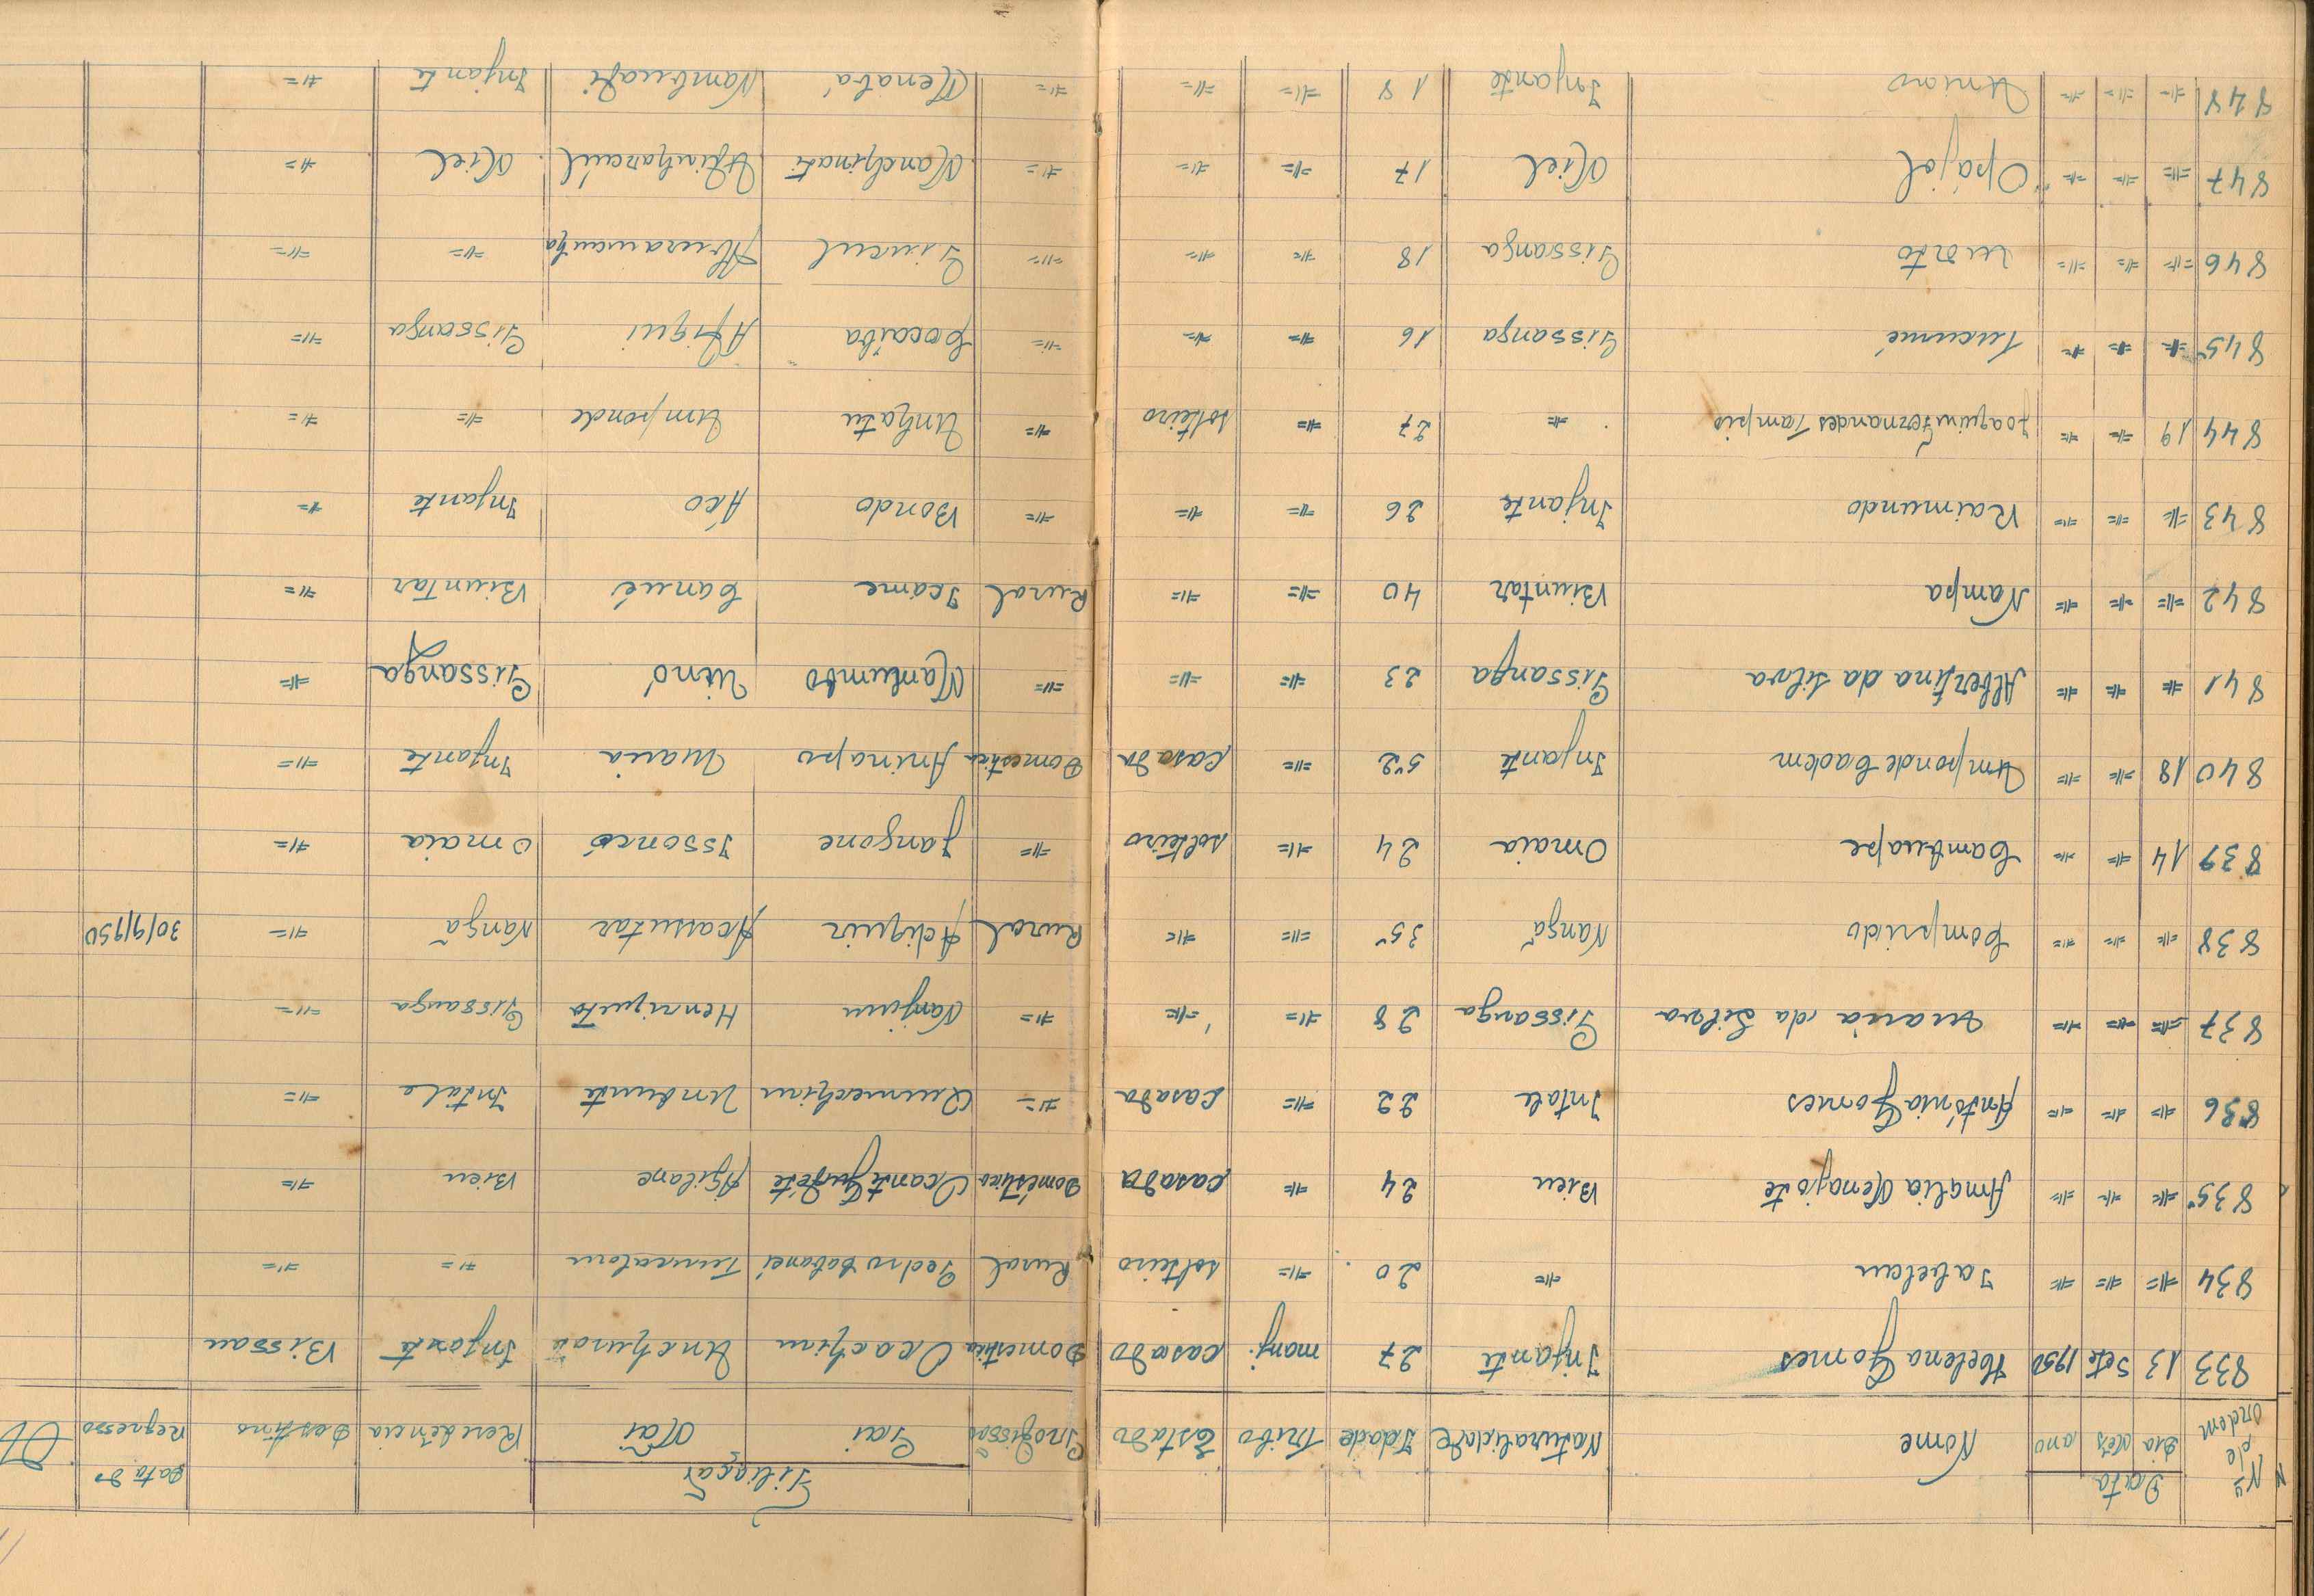 Nº de ordem | Data: Dia | Mês | ano | Nome | Naturalidade | Idade | Tribo | Estado | Profissão | Filiação: Pai | Mãi | Residência | Destino | Data do regresso
833 | 13 | Setº | 1950 | Helena Gomes | Infante | 27 | manj. | casado | Domestica | Ocachim | Unchurá | Infante | Bissau
834 | =//= | =//= | =//= | Jabelam | =//= | 20 | =//= | solteiro | Rural | Pedro Cabanei | Funcatom | =//= | =//=
835 | =//= | =//= | =//= | Amalia Menajoté | Bieu | 24 | =//= | casada | Doméstica | Ocante | Agilane | Bieu | =//=
836 | =//= | =//= | =//= | Antónia Gomes | Intale | 22 | =//= | casada | =//= | Quimechim | Undunté | Intale | =//=
837 | =//= | =//= | =//= | Maria da Silva | Pissanga | 28 | =//= | =//= | =//= | Nanjoim | Henriqueta | Pissanga | =//=
838 | =//= | =//= | =//= | Comprido | Nangã | 35 | =//= | =//= | Rural | Adiquir | Acassutar | Nangã | =//= | 30/9/950
839 | 14 | =//= | =//= | Cambuape | Omaia | 24 | =//= | solteiro | =//= | Jangone | Issoncó | Omaia | =//=
840 | 18 | =//= | =//= | Umponde Cadem | Infante | 52 | =//= | casada | Domestica | Aninapo | Maria | Infante | =//=
841 | =//= | =//= | =//= | Albertina da Silva | Pissanga | 23 | =//= | =//= | =//= | Mantumbo | Uinó | Pissanga | =//=
842 | =//= | =//= | =//= | Nampa | Biuntar | 40 | =//= | =//= | Rural | Icame | Canué | Biuntar | =//=
843 | =//= | =//= | =//= | Raimundo | Infante | 26 | =//= | =//= | =//= | Bondo | Áco | Infante | =//=
844 | 19 | =//= | =//= | Joaquim Fernandes Tampis | =//= | 27 | =//= | solteiro | =//= | Unhatu | Umponde | =//= | =//=
845 | =//= | =//= | =//= | Tucumé | Pissanga | 16 | =//= | =//= | =//= | Cocaiba | Afiqui | Pissanga | =//=
846 | =//= | =//= | =//= | Morto | Pissanga | 18 | =//= | =//= | =//= | =//= | =//=
847 | =//= | =//= | =//= | Opájol | Miel | 17 | =//= | =//= | =//= | Manchinati | Miel | =//=
848 | =//= | =//= | =//= | Infante | 18 | =//= | =//= | =//= | Menabá | Nambuati | Infante | =//=